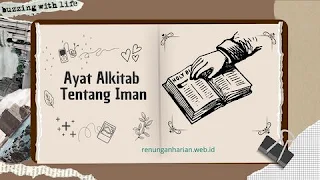 buzzing with life
Ayat Alkitab
Tentang Iman
HOLY
renunganharian.web.id